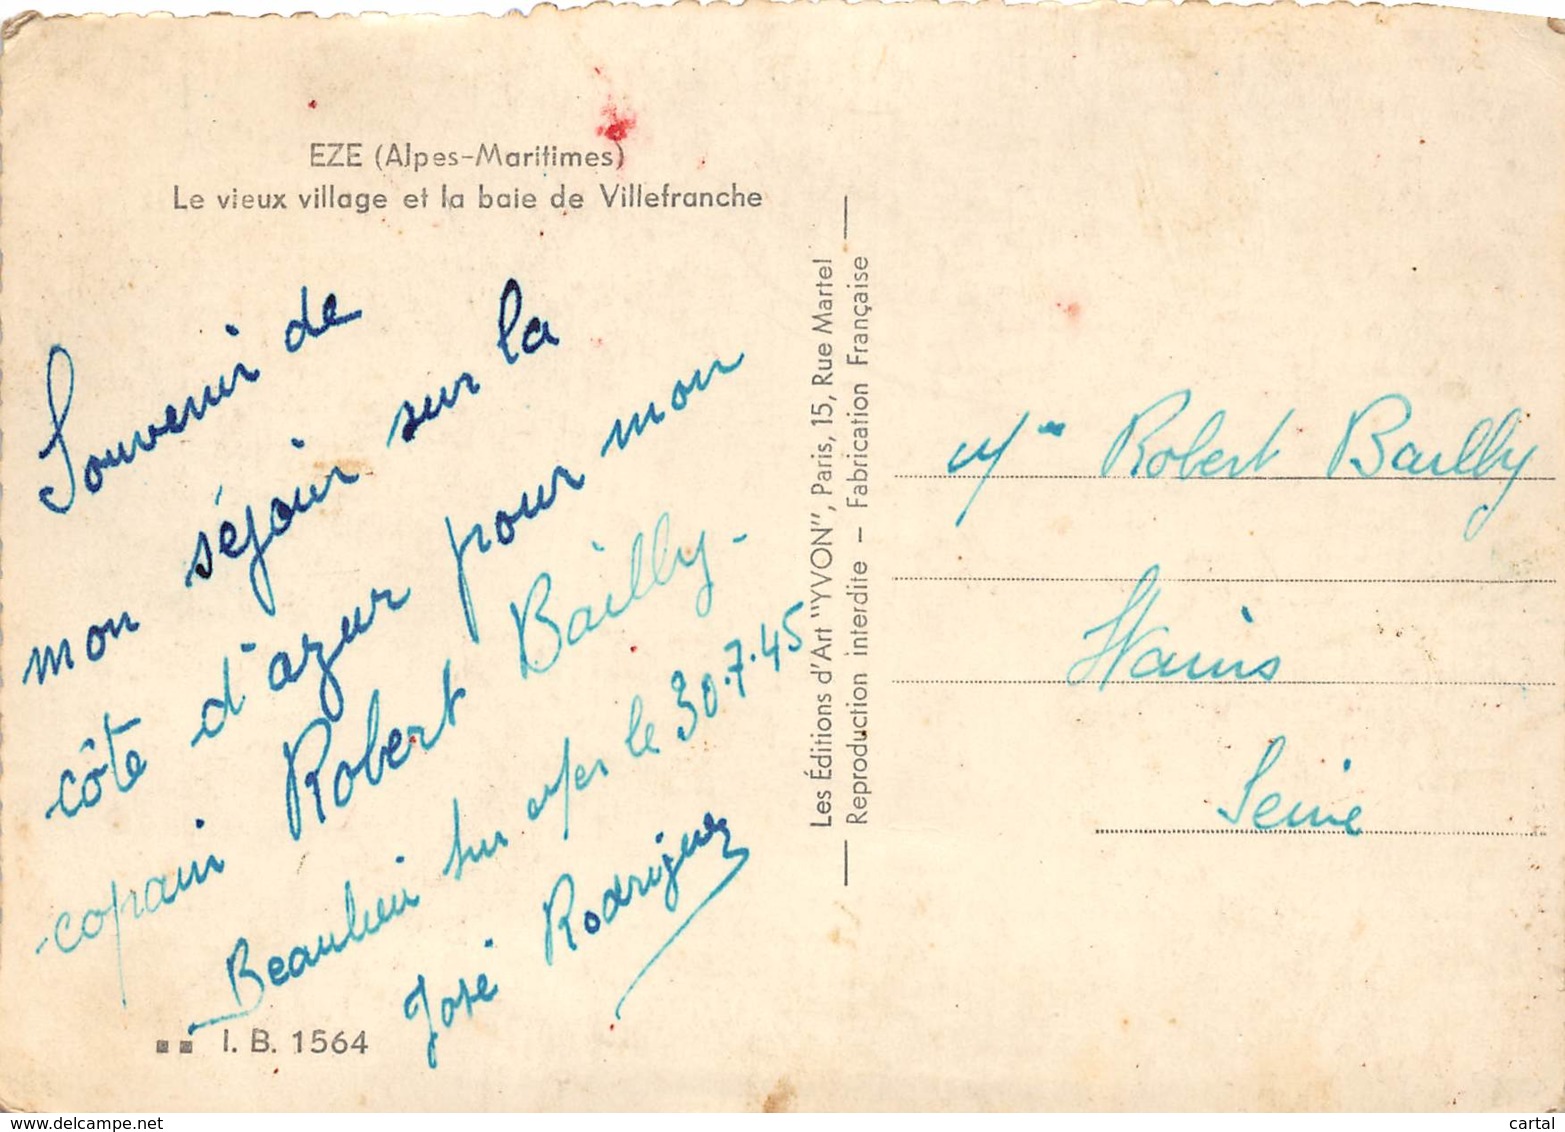 EZE (Alpes-Maritimes)
Le vieux village et la baie de Villefranche
Souvenir de
mon séjour sur la
côte d'azur pour mon
copain Robert Bailly -
Beaulieu sur Mer le 30.7.45
José Rodriguez
I. B. 1564
Les Éditions d'Art "YVON", Paris, 15, Rue Martel
Reproduction interdite – Fabrication Française
Robert Bailly
Stains
Seine
www.delcampe.net
cartal